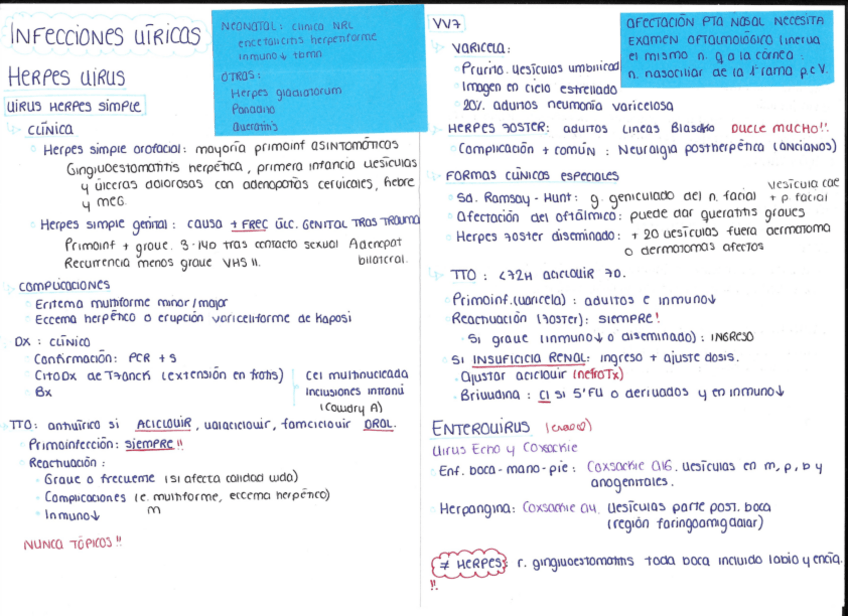 INFECCIONES VÍRICAS
NEONATAL: clínica NRL
encefalitis herpetiforme
inmuno↓ + coma
OTRAS:
Herpes gladiatorum
Panadizo
Queratitis
HERPES VIRUS
VIRUS HERPES SIMPLE
CLÍNICA
Herpes simple orofacial: mayoría primoinf ASINTOMÁTICAS
Gingivoestomatitis herpética, primera infancia vesículas
y úlceras dolorosas con adenopatías cervicales, fiebre
y MEG.
Herpes simple genital: causa + FREC ÚLC. GENITAL TRAS TRAUMA
Primoinf + grave. 3-14D tras contacto sexual Adenopat
bilateral.
Recurrencia menos grave VHS II.
COMPLICACIONES
Eritema multiforme minor/major
Eccema herpético o erupción variceliforme de Kaposi
DX: CLÍNICO
Confirmación: PCR + S
CitoDx de Tzanck (extensión en frotis)
Bx
Cel multinucleada
Inclusiones intranu
(Cowdry A)
TTO: antivírico si ACICLOVIR, valaciclovir, famciclovir ORAL.
Primoinfección: SIEMPRE!!
Reactivación:
Grave o frecuente (si afecta calidad vida)
Complicaciones (e. multiforme, eccema herpético)
m
Inmuno↓
NUNCA TÓPICOS!!
VV7
AFECTACIÓN PTA NASAL NECESITA
EXAMEN OFTALMOLÓGICO (inerva
el mismo n. q a la córnea:
n. nasociliar de la 1ª rama p.c V.
VARICELA:
Prurito. Vesículas umbilicad
Imagen en cielo estrellado
20% adultos neumonía varicelosa
HERPES ZOSTER: adultos líneas Blaschko DUELE MUCHO!!
Complicación + común: Neuralgia postherpética (ANCIANOS)
FORMAS CLÍNICAS ESPECIALES
Sd. Ramsay-Hunt: g. geniculado del n. facial
vesícula CAE
+ p facial
Afectación del oftálmico: puede dar queratitis graves
Herpes zoster diseminado: + 20 vesículas fuera dermatoma
o dermatomas afectos
TTO: <72H aciclovir 7D.
Primoinf.(varicela): adultos e inmuno↓
Reactivación (zoster): SIEMPRE!
Si grave (inmuno↓ o diseminado): INGRESO
Si INSUFICICIA RENAL: ingreso + ajuste dosis.
Ajustar aciclovir (nefroTx)
Brivudina: CI si 5'FU o derivados y en inmuno↓
ENTEROVIRUS
Virus Echo y Coxsackie
Enf. boca-mano-pie: Coxsackie A16. Vesículas en m, p, b y
anogenitales.
Herpangina: Coxsackie A4. Vesículas parte post. boca
(región faringoamigdalar)
≠ HERPES: r. gingivoestomatitis toda boca incluido labio y encía.
!!